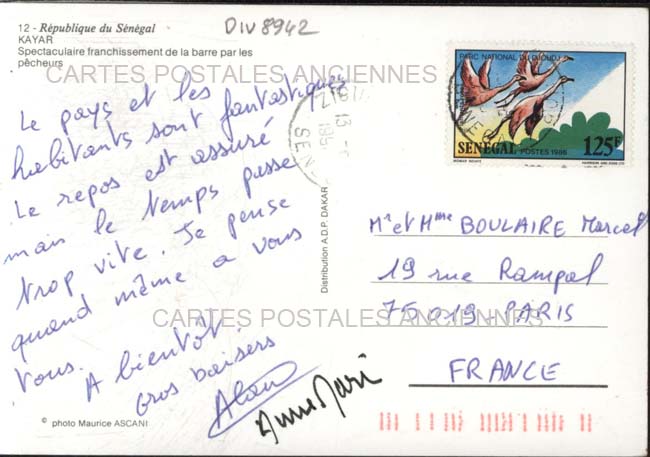 12 - République du Sénégal
KAYAR
Spectaculaire franchissement de la barre par les
pêcheurs
DIV8942
CARTES POSTALES ANCIENNES
Le pays et les
habitants sont fantastiques
Le repos est assuré
mais le temps passe
trop vite. Je pense
quand même a vous
tous.
A bientôt.
Gros baisers
Alain
Anne Marie
© photo Maurice ASCANI
Distribution A.D.P. DAKAR
PARC NATIONAL DU DJOUDJ
SENEGAL POSTES 1986 125F
Mr et Mme BOULAIRE Marcel
19 rue Rampal
75019 PARIS
FRANCE
CARTES POSTALES ANCIENNES